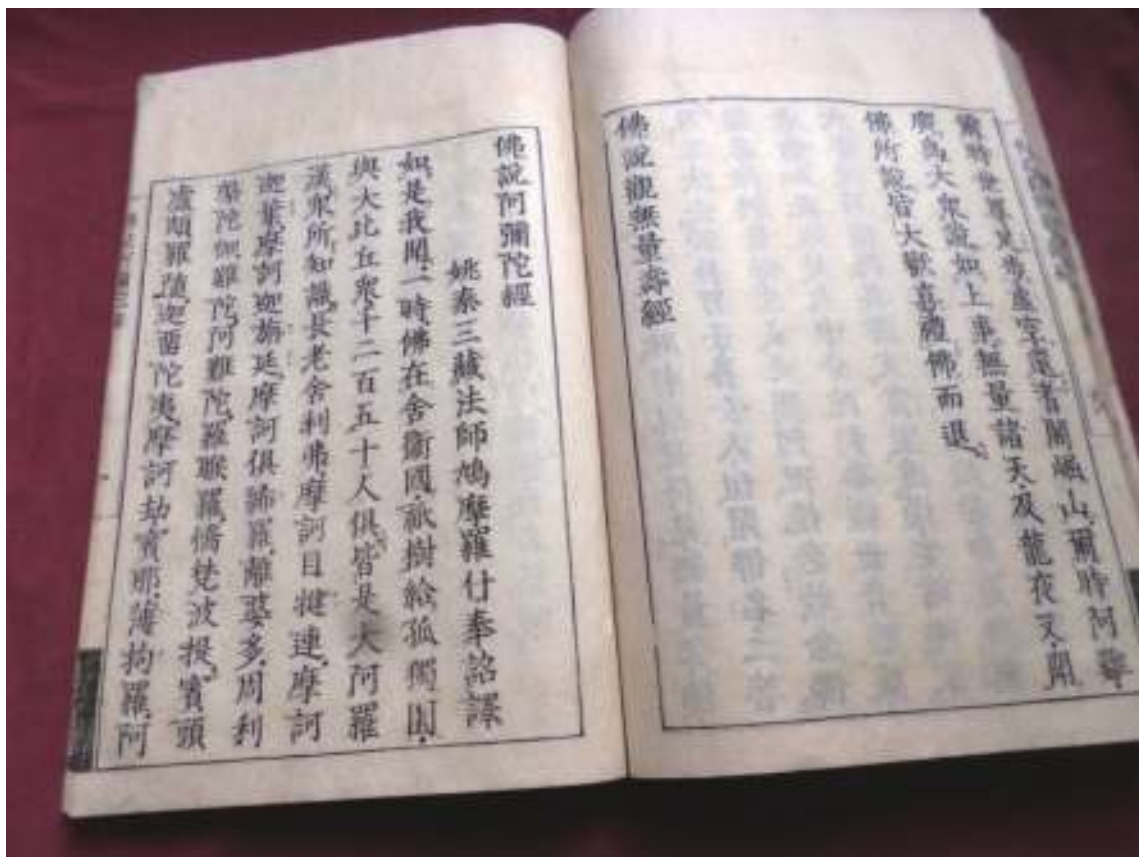 爾時世尊足步虛空還耆闍崛山爾時阿難
廣爲大衆說如上事無量諸天及龍夜叉聞
佛所說皆大歡喜禮佛而退
佛說觀無量壽經
佛說阿彌陀經
姚秦三藏法師鳩摩羅什奉詔譯
如是我聞一時佛在舍衞國祇樹給孤獨園
與大比丘衆千二百五十人俱皆是大阿羅
漢衆所知識長老舍利弗摩訶目犍連摩訶
迦葉摩訶迦旃延摩訶俱絺羅離婆多周利
槃陀伽難陀阿難陀羅睺羅憍梵波提賓頭
盧頗羅墮迦留陀夷摩訶劫賓那薄拘羅阿